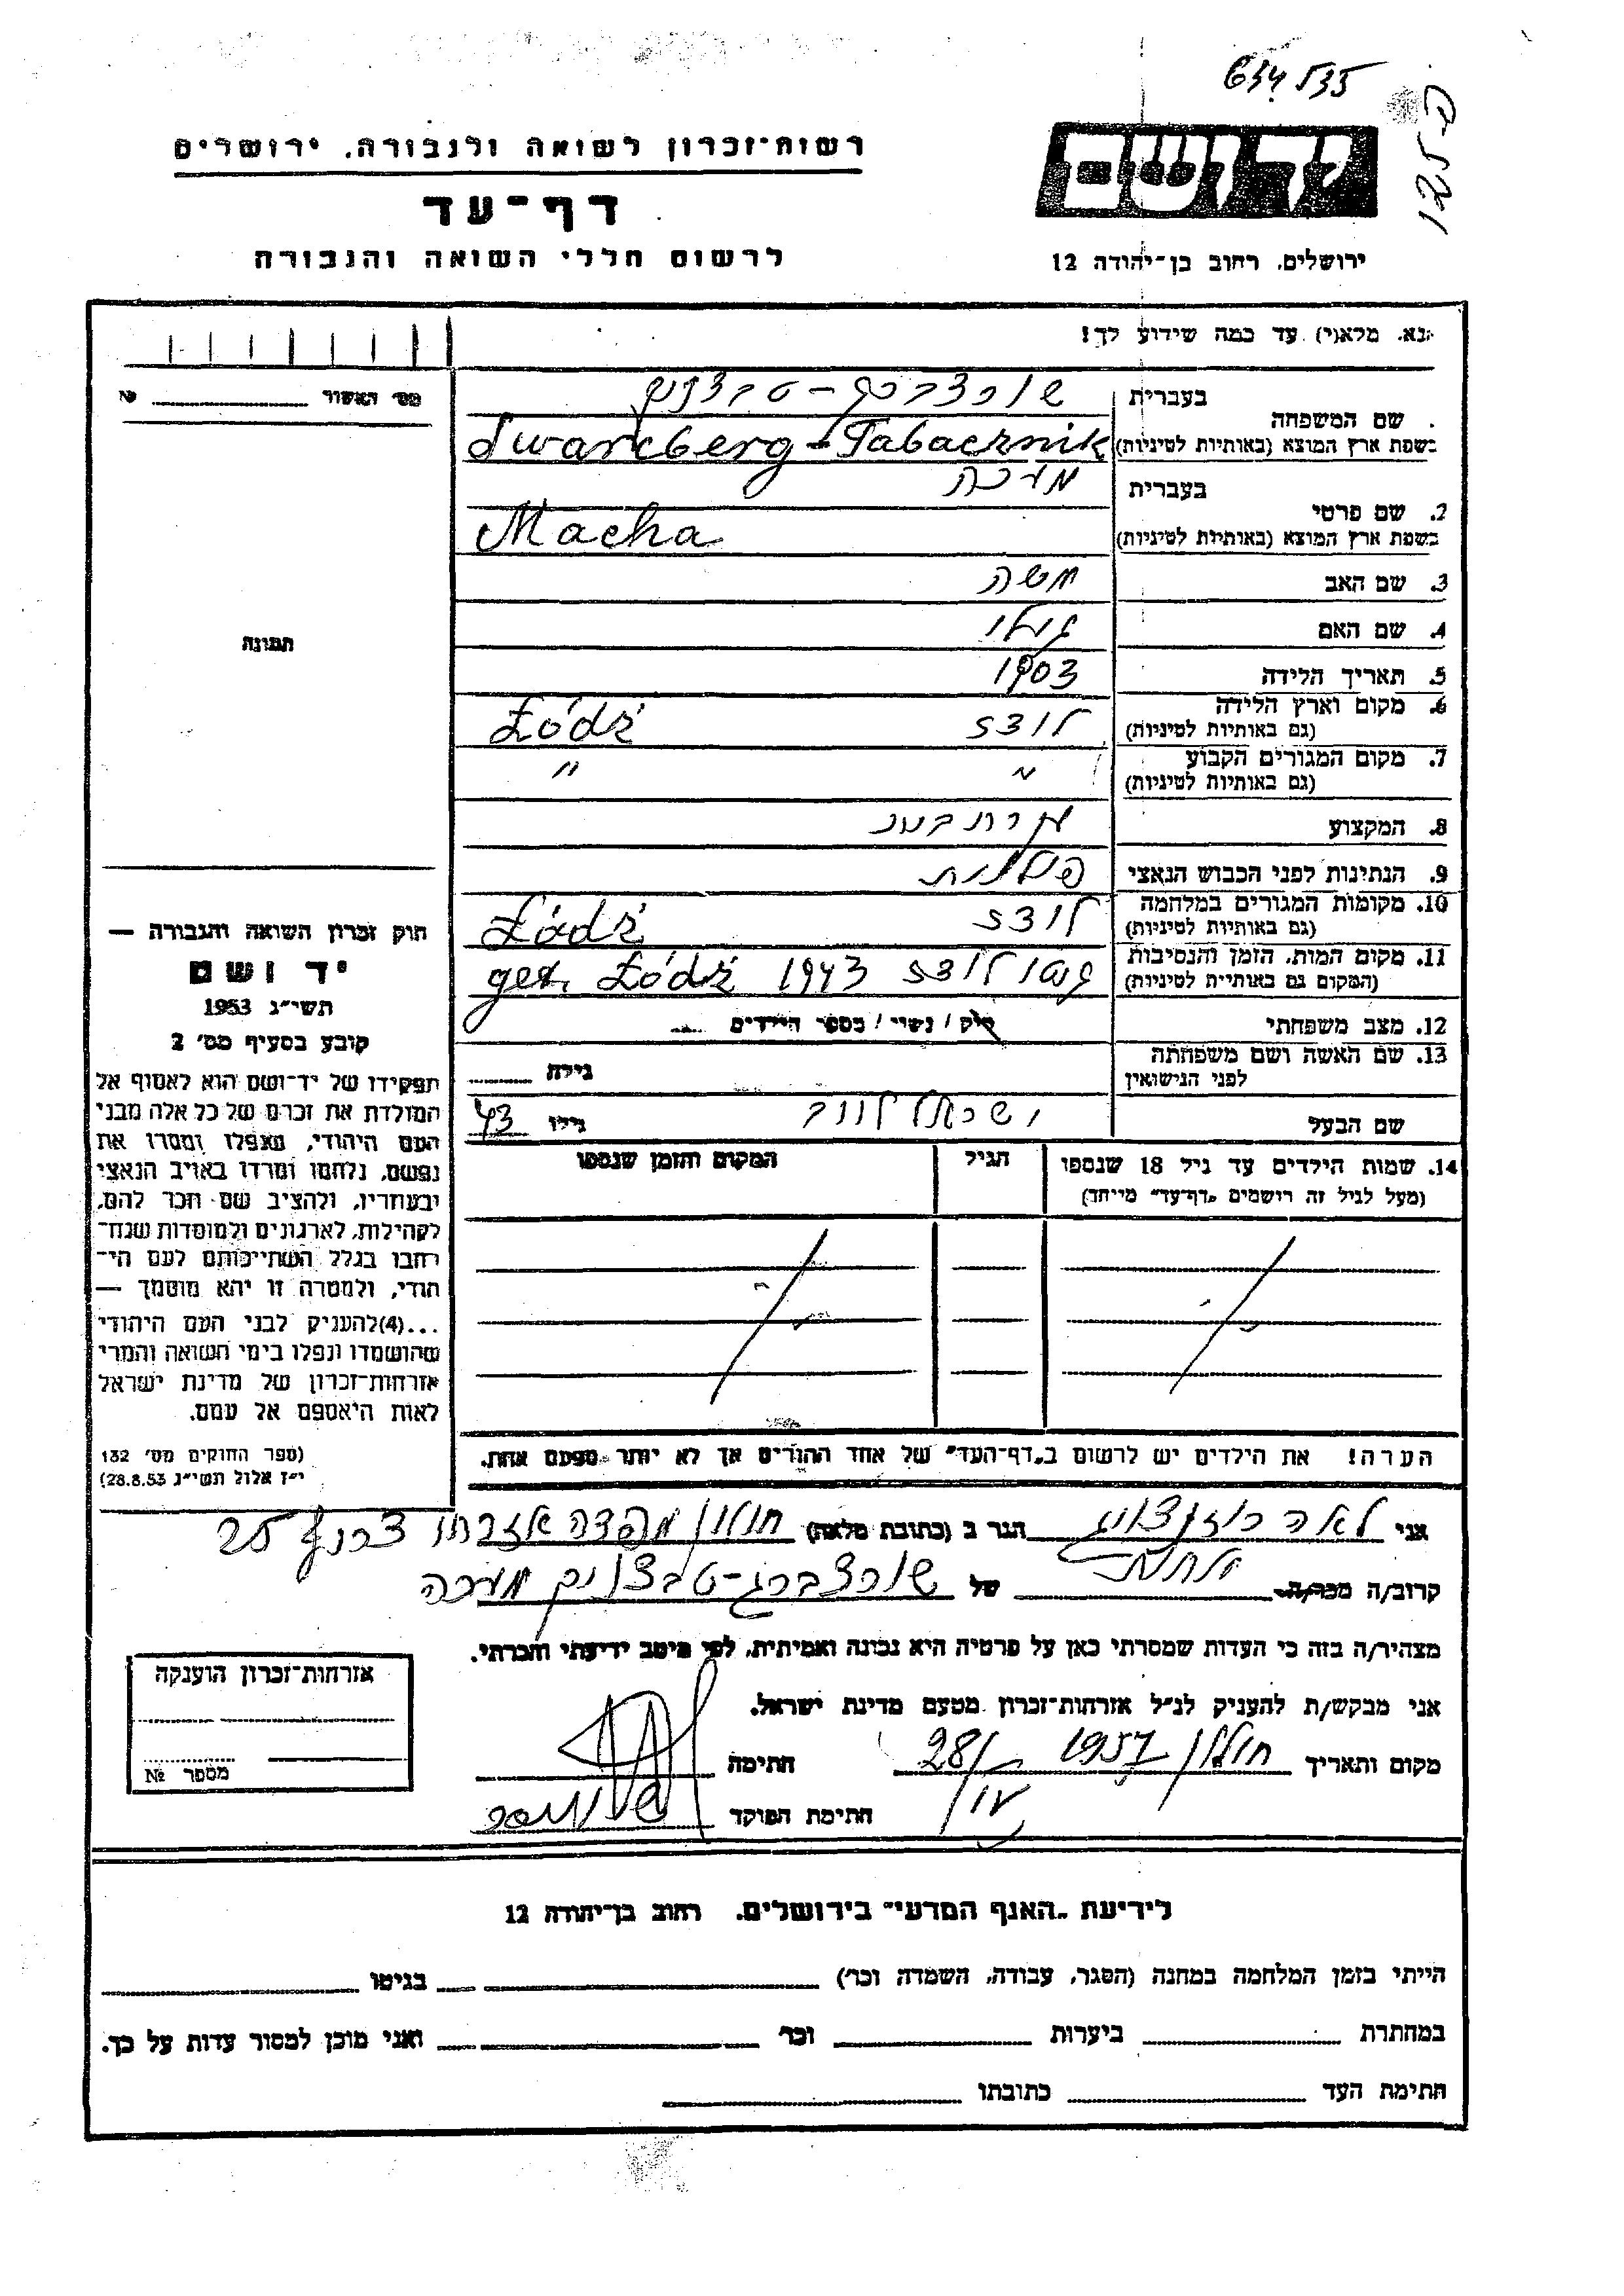 634535
125 פ
רשות־זכרון לשואה ולגבורה. ירושלים
דף־עד
לרשום חללי השואה והגבורה
יד ושם
ירושלים. רחוב בן־יהודה 12
נא. מלא(י) עד כמה שידוע לך!
מס׳ האשור № 
בעברית שורצברג – טבצניק
שם המשפחה
בשפת ארץ המוצא (באותיות לטיניות) Swarcberg – Tabacznik
בעברית
2. שם פרטי
בשפת ארץ המוצא (באותיות לטיניות) Macha
3. שם האב משה
4. שם האם
5. תאריך הלידה 1903
6. מקום וארץ הלידה
(גם באותיות לטיניות) לודז Łódź
7. מקום המגורים הקבוע
(גם באותיות לטיניות) " "
8. המקצוע
9. הנתינות לפני הכבוש הנאצי פולנית
10. מקומות המגורים במלחמה
(גם באותיות לטיניות) לודז Łódź
11. מקום המות. הזמן והנסיבות
(המקום גם באותיית לטיניות) גטו לודז 1943 get. Łódź
12. מצב משפחתי רוק / נשוי / מספר הילדים
13. שם האשה ושם משפחתה
לפני הנישואין גילה
שם הבעל גילו 43
14. שמות הילדים עד גיל 18 שנספו
(מעל לגיל זה רושמים „דף־עד״ מייחד)
הגיל
המקום והזמן שנספו
הערה! את הילדים יש לרשום ב„דף־העד״ של אחד ההורים אך לא יותר מפעם אחת.
תמונה
חוק זכרון השואה והגבורה —
יד ושם
תשי״ג 1953
קובע בסעיף מס׳ 2
תפקידו של יד־ושם הוא לאסוף אל
המולדת את זכרם של כל אלה מבני
העם היהודי, שנפלו ומסרו את
נפשם, נלחמו ומרדו באויב הנאצי
ובעוזריו, ולהציב שם וזכר להם,
לקהילות, לארגונים ולמוסדות שנח־
רבו בגלל השתייכותם לעם הי־
הודי, ולמטרה זו יהא מוסמך —
...(4)להעניק לבני העם היהודי
שהושמדו ונפלו בימי השואה והמרי
אזרחות־זכרון של מדינת ישראל
לאות היאספם אל עמם.
(ספר החוקים מס׳ 132
י״ז אלול תשי״ג 28.8.53)
אני לאה רוזנצויג הגר ב (כתובת מלאה) חולון 25
קרוב/ה מכר/ה של שורצברג – טבצניק
מצהיר/ה בזה כי העדות שמסרתי כאן על פרטיה היא נכונה ואמיתית, לפי מיטב ידיעתי והכרתי.
אני מבקש/ת להעניק לנ״ל אזרחות־זכרון מטעם מדינת ישראל.
מקום ותאריך חולון 1957 28/IV חתימה
חתימת הפוקד
אזרחות־זכרון הוענקה
מספר №
לידיעת „האגף המדעי״ בירושלים. רחוב בן־יהודה 12
הייתי בזמן המלחמה במחנה (הסגר, עבודה, השמדה וכו׳) בגיטו
במחתרת ביערות וכו׳ ואני מוכן למסור עדות על כך.
חתימת העד כתובתו